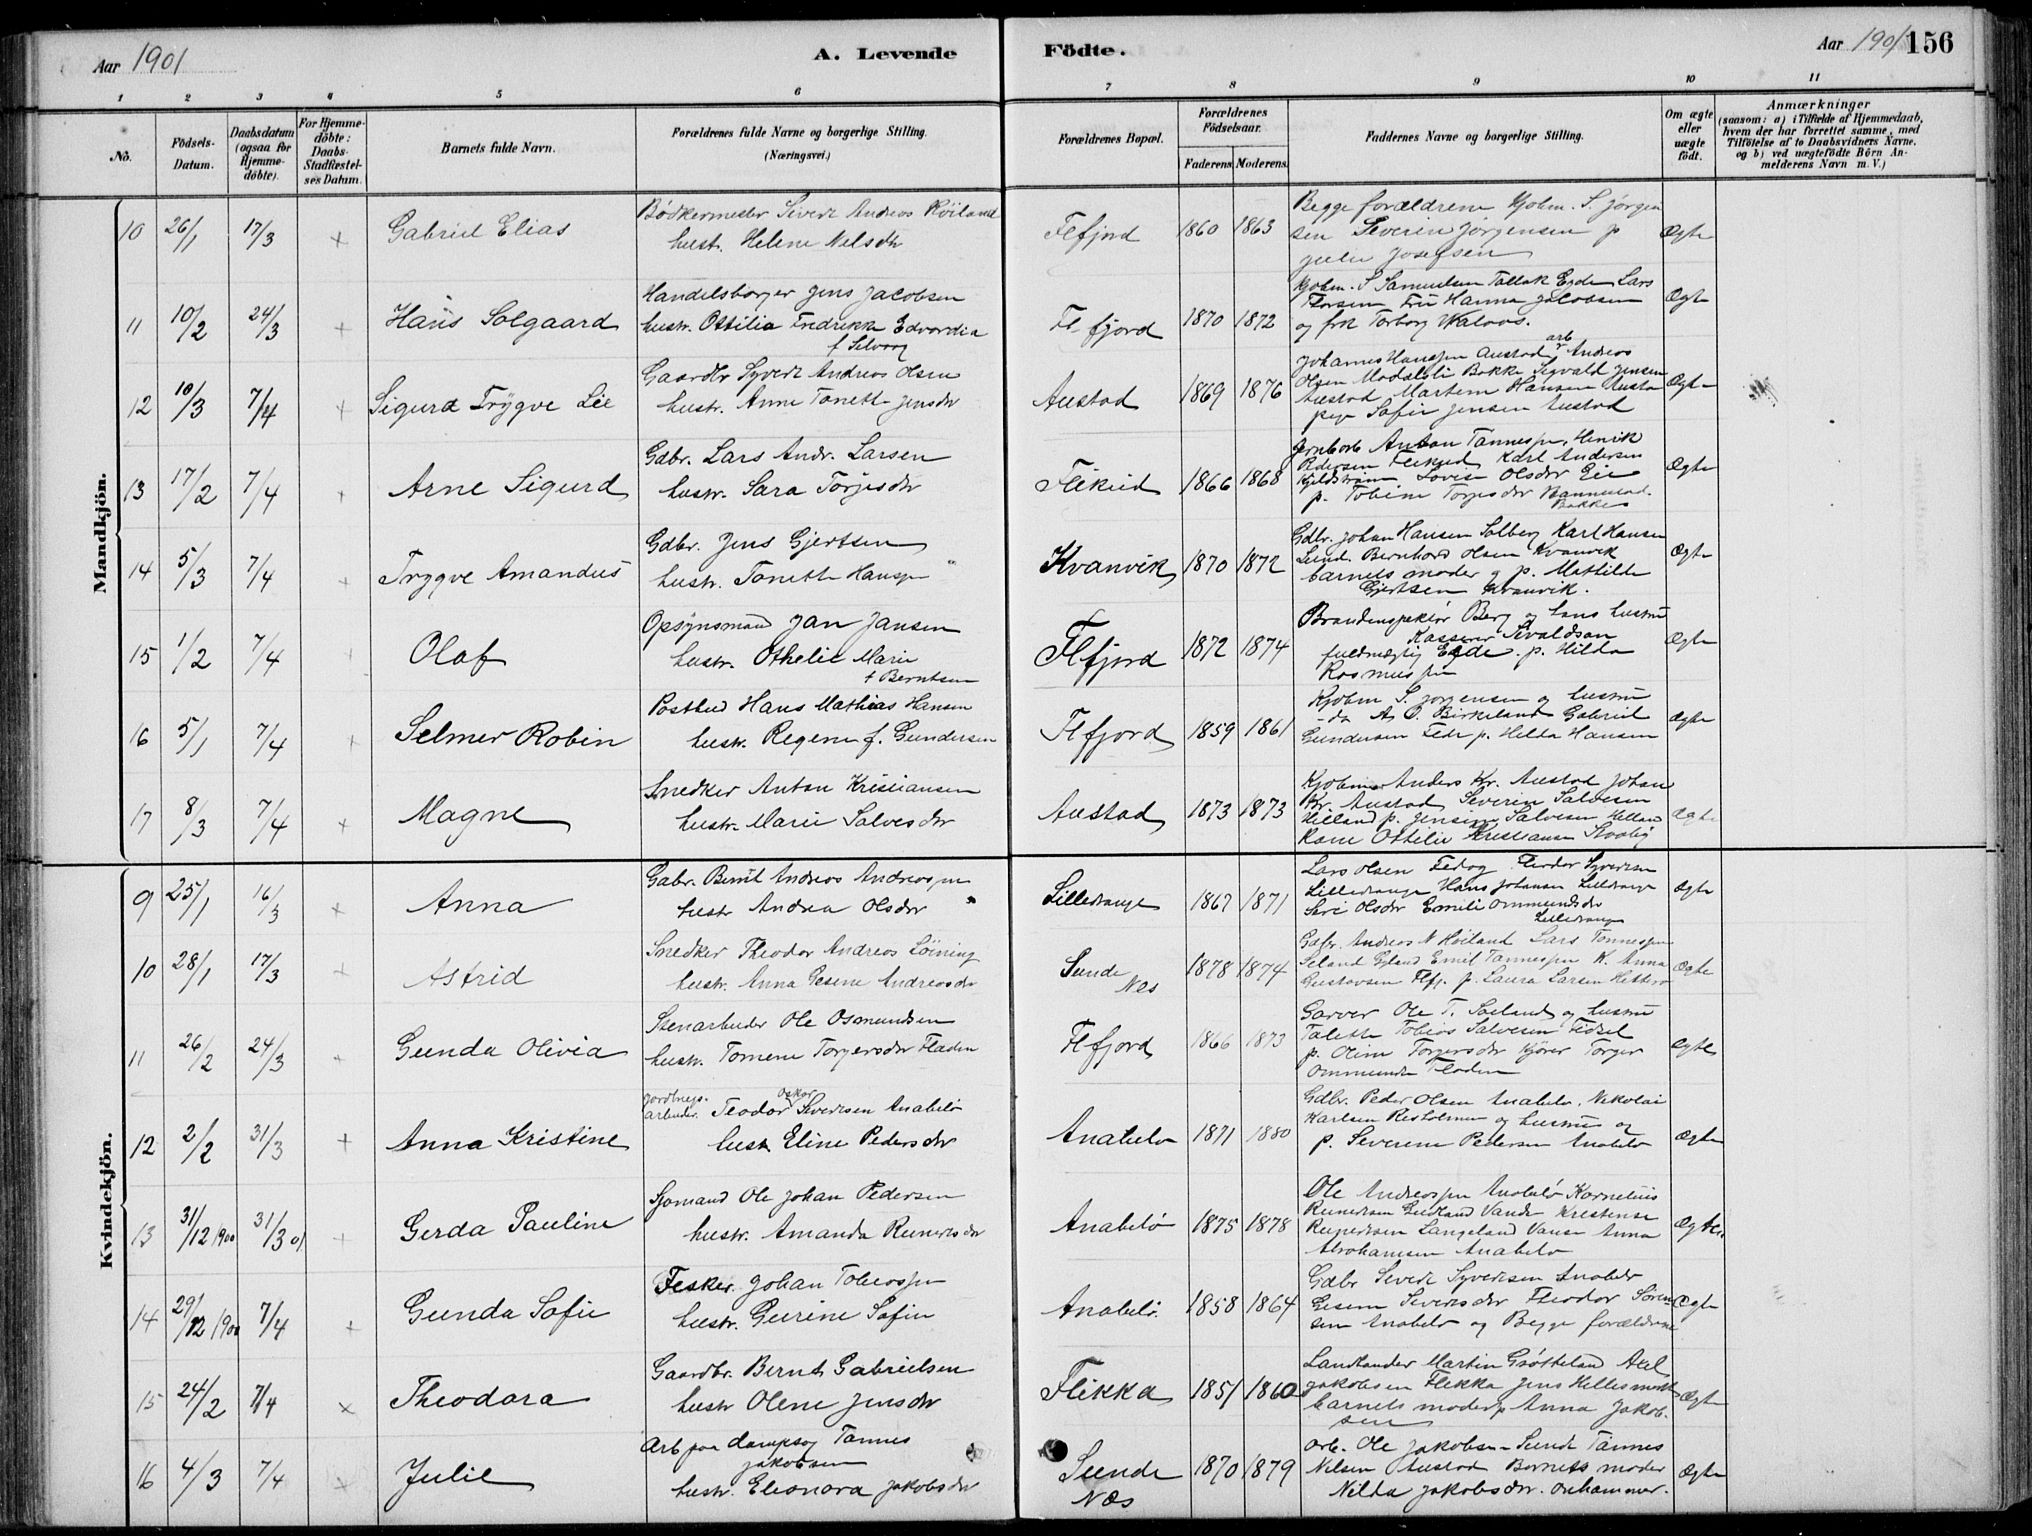 Aar 1901
A. Levende
Födte.
Aar 1901 156
1 2 3 4 5 6 7 8 9 10 11
No.
Födsels-Datum.
Daabsdatum (ogsaa for Hjemme-döbte).
For Hjemme-döbte: Daabs-Stadfæstel-ses Datum.
Barnets fulde Navn.
Forældrenes fulde Navne og borgerlige Stilling.
(Næringsvei.)
Forældrenes Bopæl.
Forældrenes Födselsaar.
Faderens. Moderens.
Faddernes Navne og borgerlige Stilling.
Om ægte eller uægte født.
Anmærkninger
(saasom: a) i Tilfælde af Hjemmedaab, hvem der har forrettet samme, med Tilföielse af to Daabsvidners Navne, og b) ved uægtefödte Börn An-melderens Navn m. V.)
Mandkjön.
10 26/1 17/3 x Gabriel Elias
Bödkermester Sivert Andreas Röiland
hustr. Helene Nelsdtr
Flfjord 1860 1863
Begge forældrene Kjøbm. S. Jörgen
sen Severin Jörgensen p
Julie Josefsen
Ægte
11 10/2 24/3 x Hans Solgaard
Handelsborger Jens Jacobsen
hustr. Ottilia Fredrikke Edvardia
Flfjord 1870 1872
Kjøbm. S Samuelsen Tallak Egde Lars
Thorsen Fru Hanna Jacobsen
og frk Torborg
Ægte
12 10/3 7/4 x Sigurd Trygve Lie
Gaardbr Syvert Andreas Olsen
hustr. Anne Tonette Jensdtr
Austad 1869 1876
Johannes Hanssen Austad arb Andreas
Olsen Bakke Sigvald Jensen
Austad Martin Hansen Austad
pige Sofie Jensen Austad
Ægte
13 17/2 7/4 x Arne Sigurd
Gdbr. Lars Andr. Larsen
hustr. Sara Törjesdtr
Flikeid 1866 1868
Jernbarb Anton Tønnesen, Henrik
Pedersen Flikeid Karl Andersen
Lovise Olsdtr Eie
p. Tobine Torjesdtr
Bakke
Ægte
14 5/3 7/4 x Trygve Amandus
Gdbr. Jens Gjertsen
hustr. Tonette Hanssen "
Kvanvik 1870 1872
Gdbr. Johan Hansen Solberg Karl Hansen
Lund. Bernhard Olsen Kvanvik
barnets moder og p. Mathilde
Gjertsen Kvanvik.
Ægte
15 1/2 7/4 x Olaf
Opsynsmand Jan Jansen
hustr. Othelie Marie
f Berntsen
Flfjord 1872 1874
Brandinspektør Berg og hans hustru
Kasserer Sivaldsen
fuldmægtig Egde. p. Hilda
Rasmussen
Ægte
16 5/1 7/4 x Selmer Robin
Postbud Hans Mathias Hansen
hustr. Regine f. Gundersen
Flfjord 1859 1861
Kjøbm S. Jörgensen og hustru
- do A. O. Birkeland Gabriel
Gundersen Fede p. Helda Hansen
Ægte
17 8/3 7/4 x Magne
Snedker Anton Kristiansen
hustr. Marie Salvesdtr
Austad 1873 1873
Kjøbm Anders Kr. Austad Johan
Kr. Austad, Severin Salvesen
Helland p. Jensine Salvesen Helland
Kone Ottilie Kristiansen
Ægte
Kvindekjön.
9 25/1 16/3 x Anna
Gabr. Bernt Andreas Andreassen
hustr Andrea Olsdtr "
Lilledrange 1867 1871
Lars Olsen Fedog Theodor Syvertsen
Lilledrange Hans Johansen Lilledrange
Siri Olsdtr Emilie Ommundsdtr
Lilledrange
Ægte
10 28/1 17/3 x Astrid
Snedker Theodor Andreas Löining
hustr. Anna Gesine Andreasdtr
Sunde
Nes 1878 1874
Gdbr. Andreas N Høiland Lars Tønnessen
Seland Gyland Emil Tønnessen K. Anna
Gustavsen Flfj. p. Laura Larsen Hitterø
Ægte
11 26/2 24/3 x Gunda Olivia
Stenarbeider Ole Osmundsen
hustr. Tomene Torgersdtr Fladen
Flfjord 1866 1873
Garver Ole T. Søeland og hustru
Talette Tobias Salvesen Fidsel
p. Oline Torgersdtr Torger
Ommundsen Fladen
Ægte
12 2/2 31/3 x Anna Kristine
Jordbrugs-arbeider. Teodor Oskar Severtsen Anabelø
hustr Eline Pedersdtr
Anabelø 1871 1880
Gdbr. Peder Olsen Anabelø. Nikolai
Karlsen Resholmen og hustru og
p. Severine Pedersen Anabelø
Ægte
13 31/12 1900 31/3 01 x Gerda Pauline
Sjømand Ole Johan Pedersen
hustr. Amanda Reinertsdtr
Anabelø 1875 1878
Ole Andreassen Anabelø Kornelius
Reinertsen Vanse Kristense
Reinertsen Langeland Vanse Anna
Abrahamsen Anabelø
Ægte
14 29/12 1900 7/4 x Gunda Sofie
Fisker Johan Tobiassen
hustr. Gurine Sofie
Anabelø. 1858 1864
Gdbr Sivert Syvertsen Anabelø
Gesine Sivertsdtr Theodor Sören
sen Anabelø og Begge forældrene
Ægte
15 24/2 7/4 x Theodora
Gaardbr. Bernt Gabrielsen
hustr Olene Jensdtr
Flikka 1851 1860
Landhandler Martin Grøtteland Axel
Jakobsen Flikka Jens Hellesmark
barnets moder p Anna Jakob-
sen
Ægte
16 4/3 7/4 x Julie
Arb paa dampsag Tønnes
Jakobsen
hustr. Eleonora Jakobsdtr
Sunde
Næs 1870 1879
arb. Ole Jakobsen Sunde Tønnes
Nilsen Austad Barnets moder
Nilda Jakobsdtr. Anhammer.
Ægte